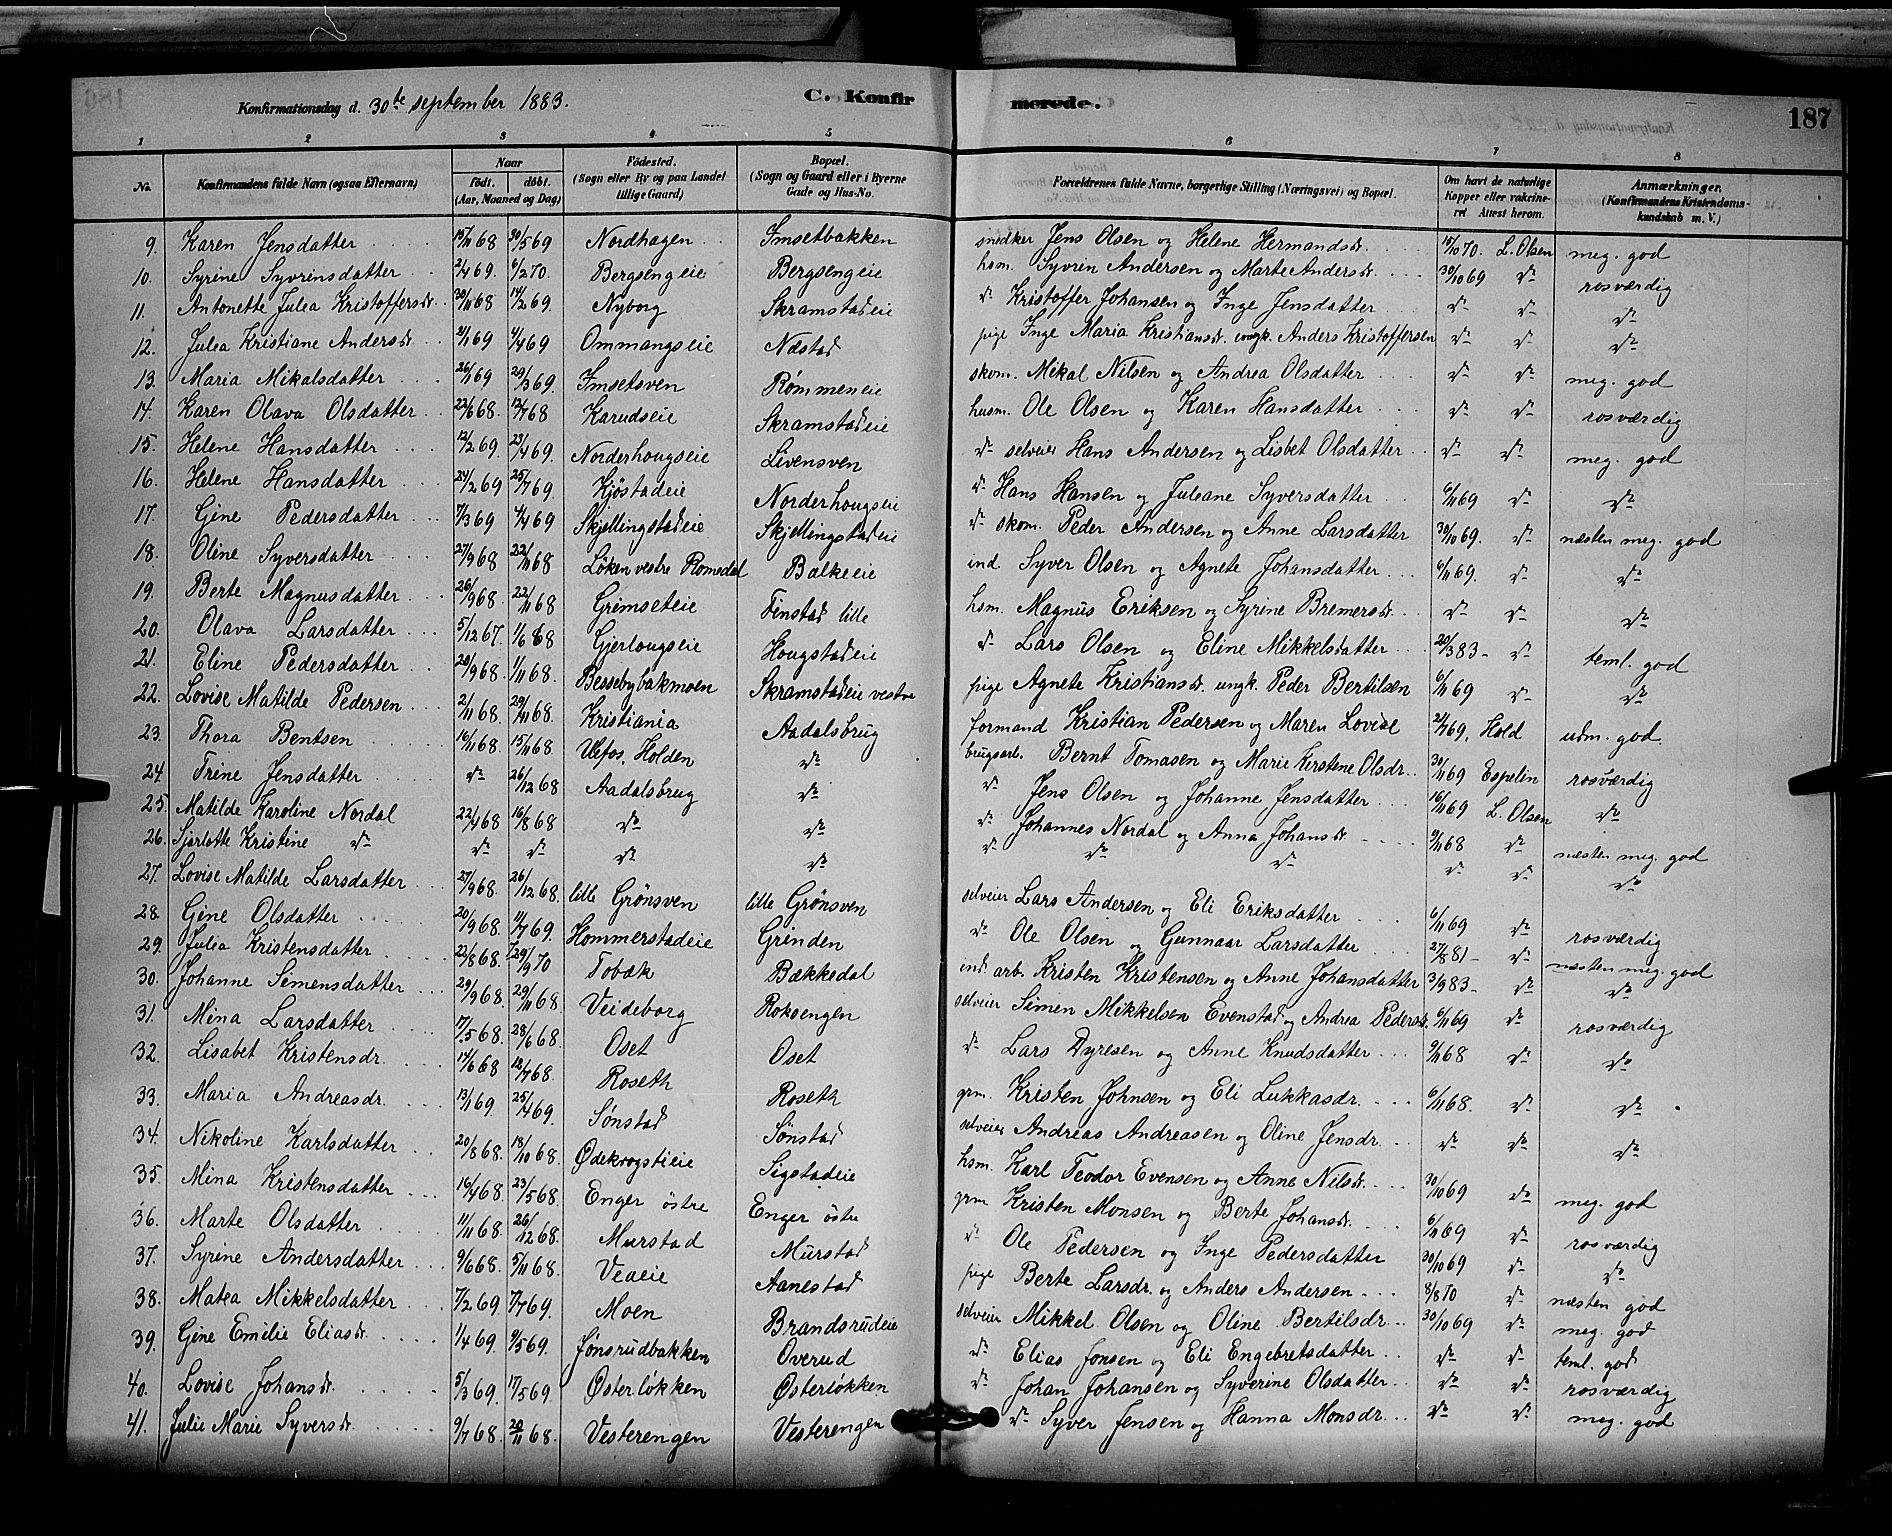 Konfirmationsdag d. 30te september 1883. C. Konfirmerede. 187
1 2 3 4 5 6 7 8
No. Konfirmandens fulde Navn (ogsaa Efternavn) Naar födt. döbt. (Aar, Maaned og Dag) Födested. (Sogn eller By og paa Landet tillige Gaard) Bopæl. (Sogn og Gaard eller i Byerne Gade og Hus-No. Forældrenes fulde Navne, borgerlige Stilling (Næringsvei) og Bopæl. Om havt de naturlige Kopper eller vakcineret Attest herom. Anmærkninger. (Konfirmandens Kristendomskundskab m. V.)
9. Karen Jensdatter 15/11 68 30/5 69 Nordhagen Imsetbakken snedker Jens Olsen og Helene Hermandsdr. 15/10 70. L. Olsen meg. god
10. Syrine Syvrinsdatter 2/4 69. 6/2 70. Bergsengeie Bergsengeie hsm. Syvrin Andersen og Marte Andersdr. 30/10 69 do rosværdig
11. Antonette Julea Kristoffersdr. 30/11 68 14/2 69. Nyborg Skramstadeie do Kristoffer Johansen og Inge Jensdatter do do do
12. Julea Kristiane Andersdr 2/1 69 4/4 69 Ommangseie Næstad pige Inge Maria Kristiansdr. ungk. Anders Kristoffersen do do do
13. Maria Mikalsdatter 26/1 69 29/3 69. Imsetsven Rømmeneie skom. Mikal Nilsen og Andrea Olsdatter do do meg. god
14. Karen Olava Olsdatter 22/6 68. 12/7 68 Karudseie Skramstadeie husm. Ole Olsen og Karen Hansdatter do do rosværdig
15. Helene Hansdatter 12/2 69. 23/4 69. Norderhougseie Livensven do selveier Hans Andersen og Lisbet Olsdatter do do meg. god
16. Helene Hansdatter 24/2 69 25/7 69. Kjöstadeie Norderhougseie do Hans Hansen og Juleane Syversdatter 6/11 69 do do
17. Gine Pedersdatter 7/3 69 4/4 69 Skjellingstadeie Skjellingstadeie do skom. Peder Andersen og Anne Larsdatter 30/10 69. do næsten meg. god
18. Oline Syversdatter 27/9 68 22/11 68 Løken vestre Romedal Balkeeie ind Syver Olsen og Agnete Johansdatter 6/11 69. do do
19. Berte Magnusdatter 26/9 68. 22/11 68 Grimseteie Finstad lille hsm. Magnus Eriksen og Syrine Bremersdr. do do do
20. Olava Larsdatter 5/12 67. 1/6 68 Gjerlougseie Hougstadeie do Lars Olsen og Eline Mikkelsdatter 20/3 83 - do teml. god
21. Eline Pedersdatter 20/9 68. 1/11 68. Bessebybakmoen Skramstadeie vestre pige Agnete Kristiansdr. ungk. Peder Bertilsen 6/11 69 do do
22. Lovise Matilde Pedersen 2/11 68. 29/11 68. Kristiania Aadalsbrug formand Kristian Pedersen og Maren Lovise 2/7 69, Hold udm. god
23. Thora Bentsen 16/11 68. 15/11 68 Ulefos, Holden do brugsarb. Bernt Tomasen og Marie Kirstene Olsdr. 30/11 69 Espelin rosværdig
24. Trine Jensdatter do 26/12 68 Aadalsbrug do do Jens Olsen og Johanne Jensdatter 16/11 69 L. Olsen do
25. Matilde Karoline Nordal 22/4 68 16/8 68 do do do Johannes Nordal og Anna Johansdr 9/11 68 do næsten meg. god
26. Sjarlotte Kristine do do do do do do do do do do do
27. Lovise Matilde Larsdatter 27/9 68. 26/12 68. lille Grønsven lille Grønsven selveier Lars Andersen og Eli Eriksdatter 6/11 69 do rosværdig
28. Gine Olsdatter 20/9 68. 11/7 69. Hommerstadeie Grinden do Ole Olsen og Gunnaar Larsdatter 27/8 81 - do næsten meg. god
29. Julia Kristensdatter 22/8 68. 29/9 70 Tobæk Bækkedal ind. arb. Kristen Kristensen og Anne Johansdatter 3/9 83 - do do
30. Johanne Simensdatter 29/9 68. 29/11 68. Veideborg Rokoengen selveier Simen Mikkelsen Evenstad og Andrea Pedersdr. 6/11 69 do rosværdig
31. Mina Larsdatter 17/5 68. 28/6 68. Oset Oset do Lars Dyresen og Anne Knudsdatter 9/11 68 do do
32. Lisabet Kristensdr. 14/6 68 12/7 68. Roseth Roseth grm. Kristen Johnsen og Eli Lukkasdr. 6/11 68. do do
33. Maria Andreasdr. 13/1 69. 25/4 69. Sønstad Sønstad selveier Andreas Andreasen og Oline Jensdr. do do do
34. Nikoline Karlsdatter 20/8 68. 18/10 68. Ødekrogstieie Sigstadeie hsm. Karl Teodor Evensen og Anne Nilsdr. 30/10 69 do meg. god
35. Mina Kristensdatter 16/4 68. 23/5 68. Enger östre Enger östre grm Kristen Monsen og Berte Johansdr. 6/11 69 do rosværdig
36. Marte Olsdatter 11/11 68. 26/12 68. Murstad Murstad do Ole Pedersen og Inge Pedersdatter 30/10 69 do do
37. Syrine Andersdatter 9/6 68. 5/11 68. Veaeie Aanestad pige Berte Larsdr. og Anders Andersen 8/8 70 do næsten god
38. Matea Mikkelsdatter 7/2 69. 7/7 69. Moen Brandsrudeie selveier Mikkel Olsen og Oline Bertilsdr. 30/10 69 do meg. god
39. Gine Emilie Eliasdr. 1/4 69. 9/5 69. Jönsrudbakken Overud do Elias Jonsen og Eli Engebretsdatter do do teml. god
40. Lovise Johansdr. 5/3 69. 17/5 69. Østerløkken Østerløkken do Johan Johansen og Syverine Olsdatter do do rosværdig
41. Julie Marie Syversdr. 9/7 68. 20/11 68. Vesterengen Vesterengen do Syver Jensen og Hanna Monsdr. do do meg. god